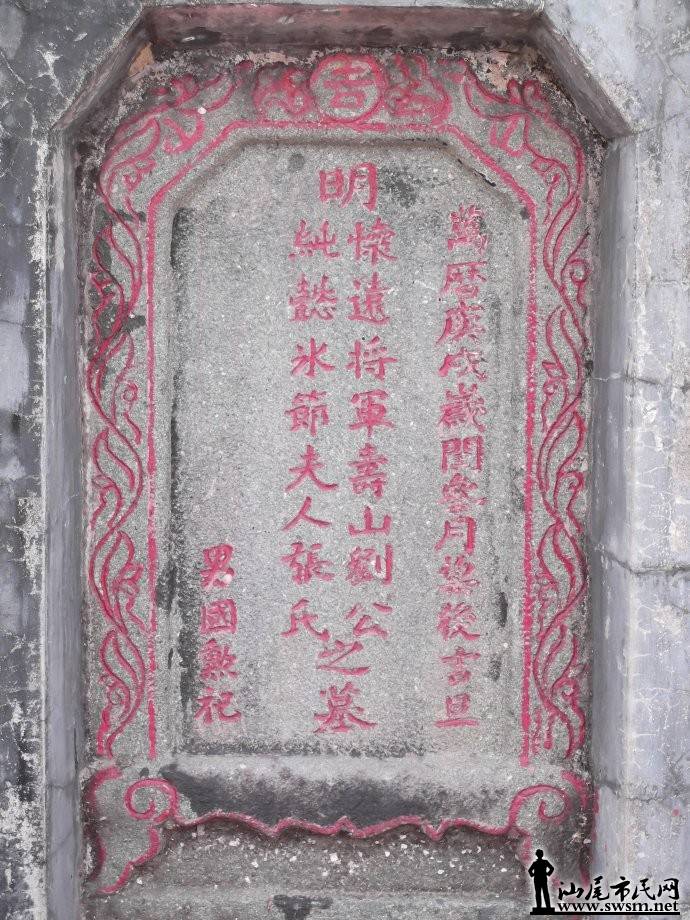 萬暦庚戌歲閏叁月後吉旦
明
懷遠將軍壽山劉公
純懿氷節夫人張氏
之墓
男國勲祀
汕尾市民网
www.swsm.net